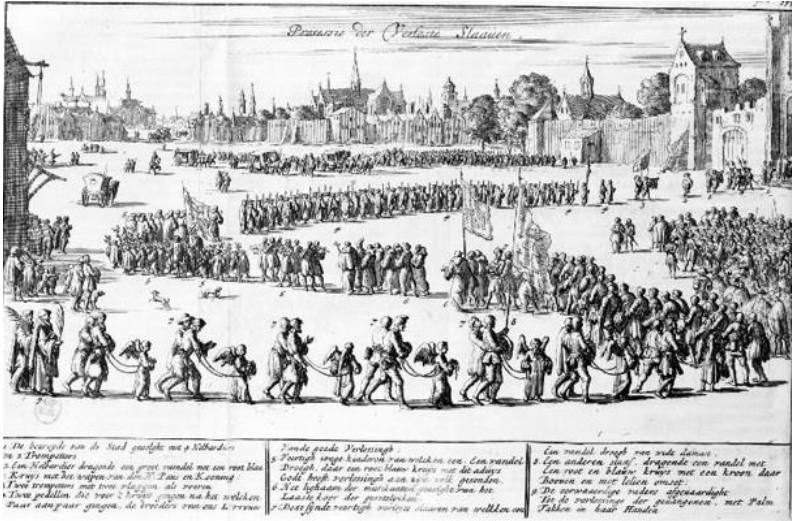 Processie der Verloste Slaaven.
1. De bereyde van de Stad gevolght met 9 Helbardiers
en 2 Trompetters
2. Een Helbardier dragende een groot vaendel met een root blau
Kruys met het wapen van den Paus en Kooning
Twee trompetters met twee vlaggen als vooren
4. Twee pedellen die voor 't kruys gingen na het welcken
Paar aan paar gingen, de broeders van ons L. vrouw
Vande goede Verlossingh
5. Veertigh jonge kinderen van welcken een Een vandel
Droegh, daar een root blauw kruys met dit advys
Godt heeft verlossingh aan zyn volk gesonden.
6. Het lighaam der musikanten gevolght van het
Laaste koor der geestelycken
7. Doet sijnde veertigh verloste slaaven van welkken een
Een vandel droegh van witt damast
8. Een anderen slaaf, dragende een vandel met
Een root en blauw kruys met een kroon daar
Boonen en met lelien omset.
9. De eerwaerdige vaders afgevaardight
Tot de verlossinge der gevangenen, met Palm
Takken in haar Handen